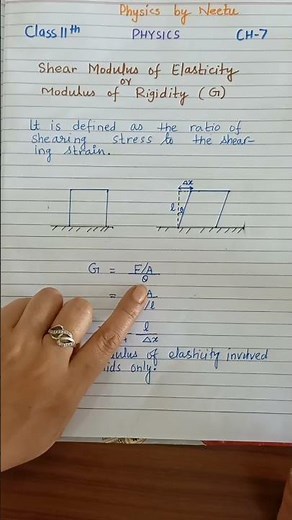 Physics by Neetu
Class 11th PHYSICS CH-7
Shear Modulus of Elasticity
or
Modulus of Rigidity (G)
It is defined as the ratio of
shearing stress to the shear-
ing strain.
Δx
l θ
G = F/A
θ
= A
/l
l
Δx
of elasticity involved
only.